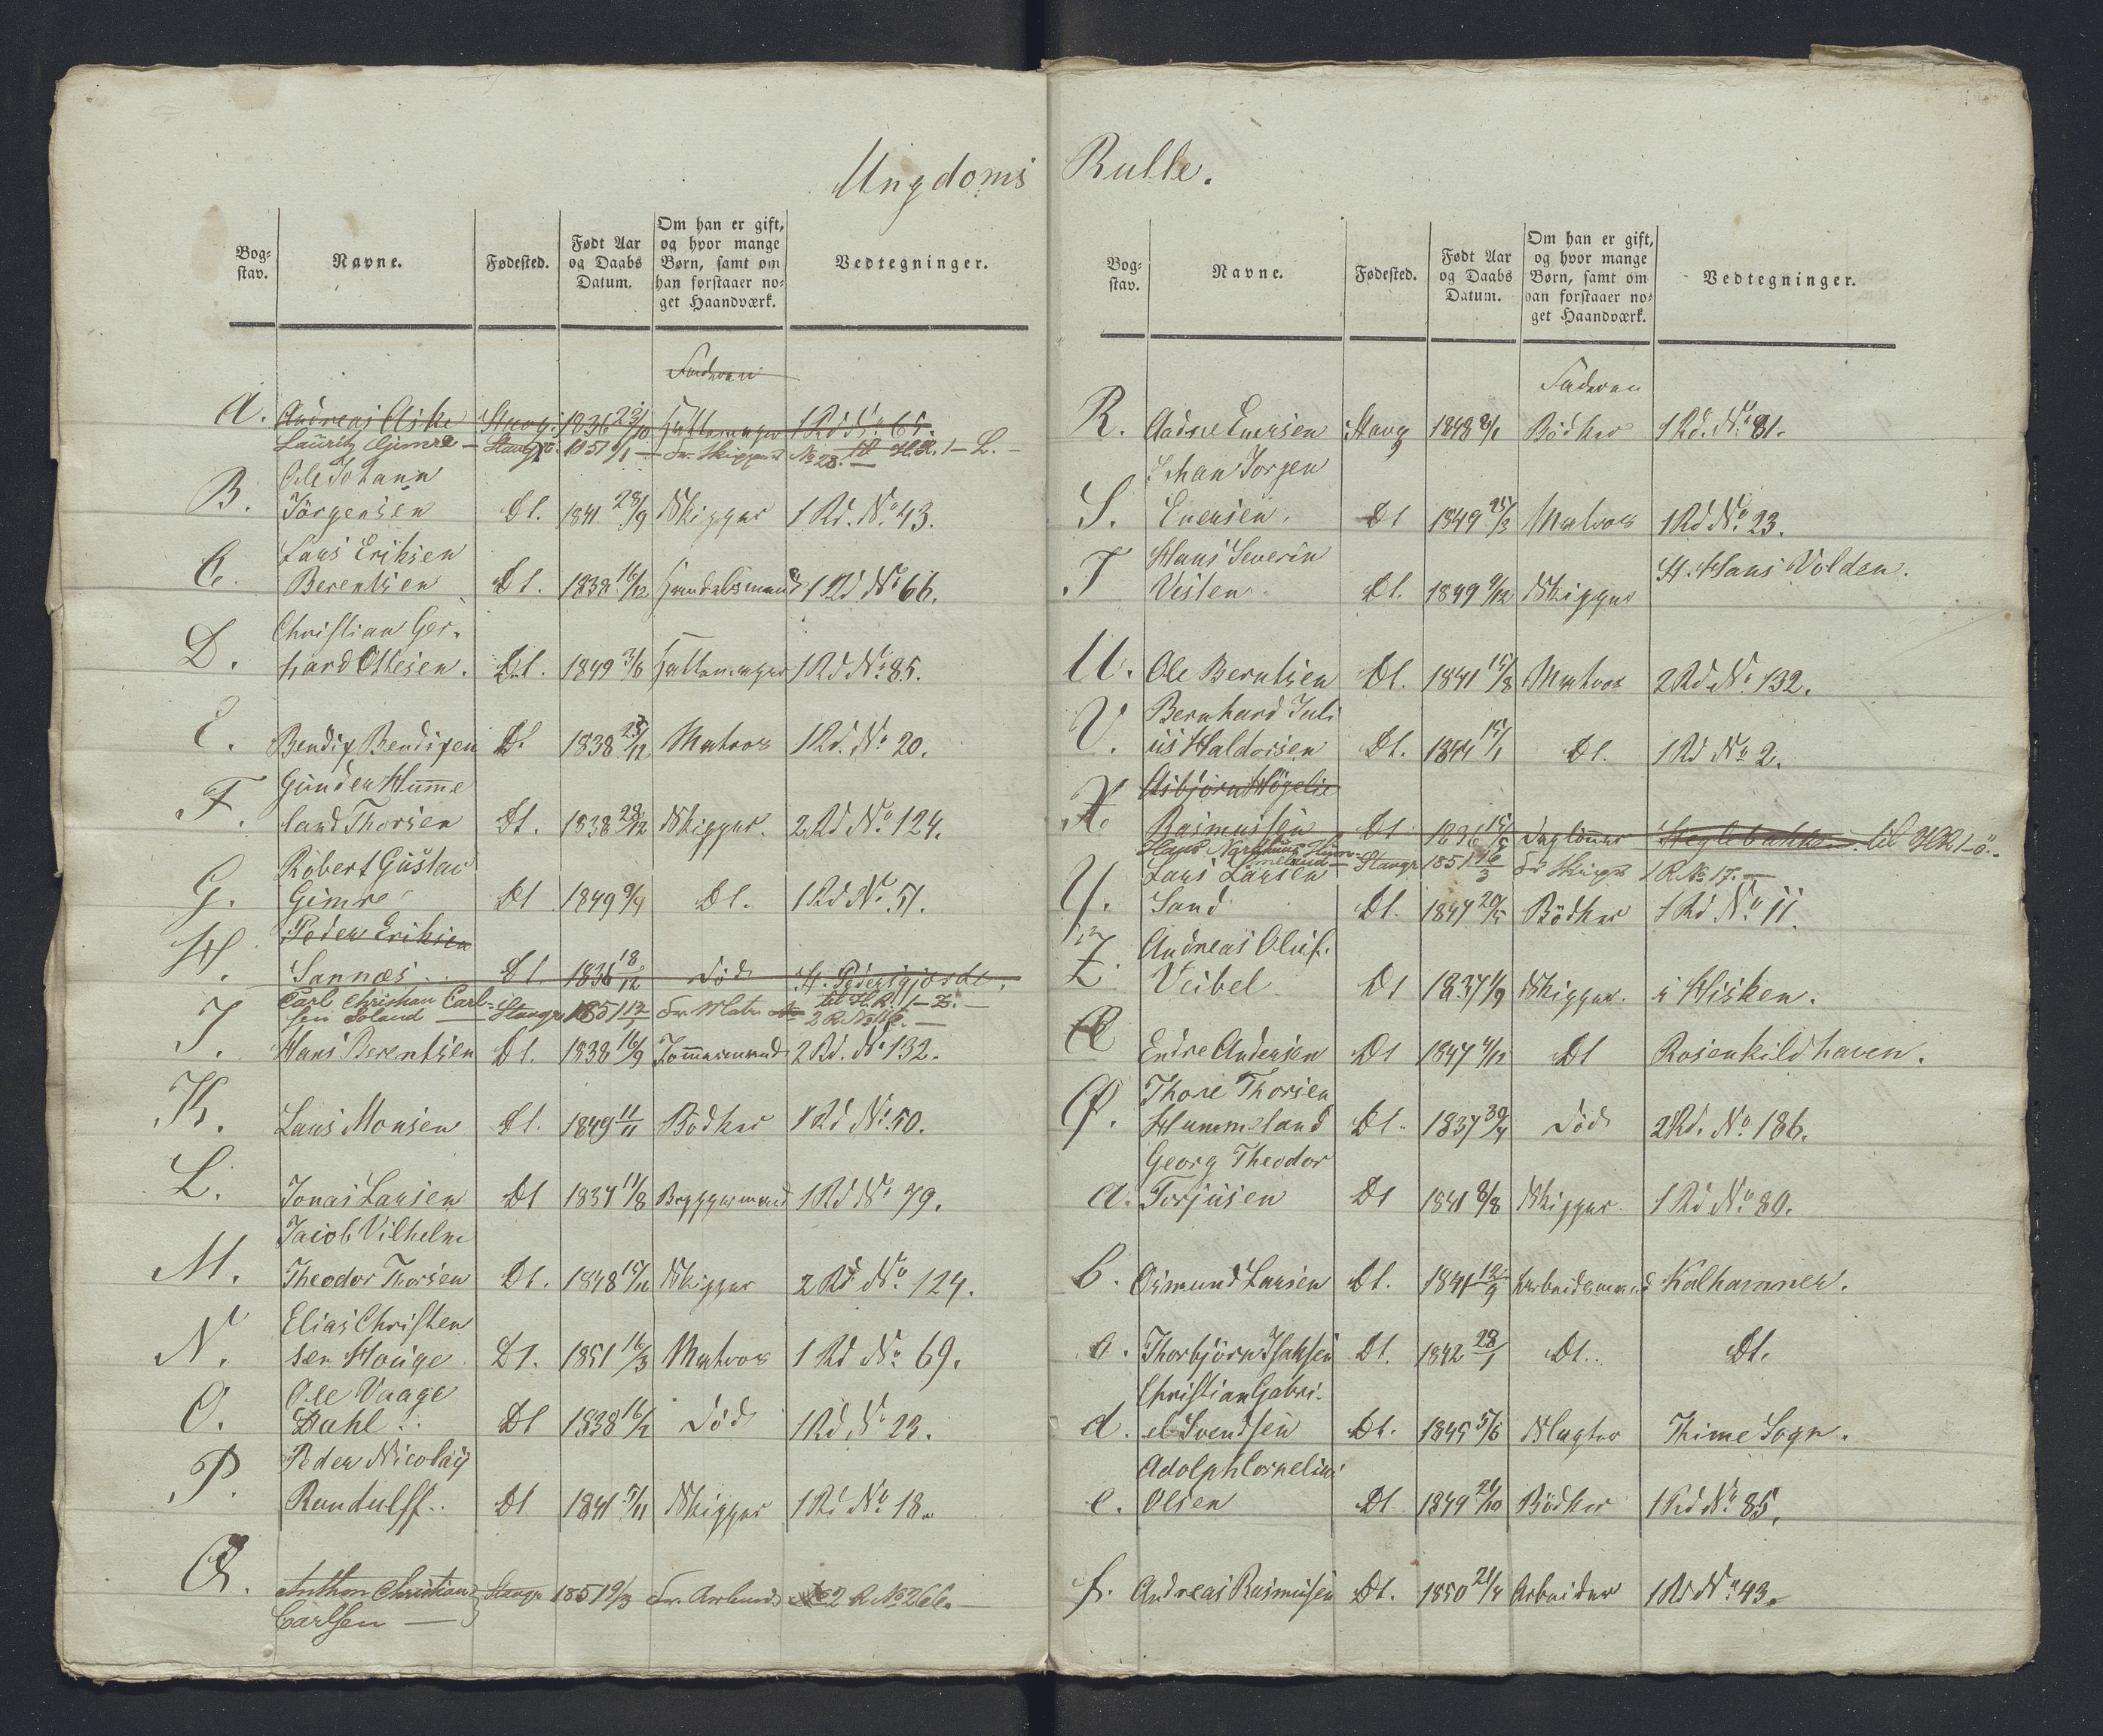 Ungdoms Rulle.
Bog-
stav.
Navne.
Fødested.
Født Aar
og Daabs
Datum.
Om han er gift,
og hvor mange
Børn, samt om
han forstaaer no-
get Haandværk.
Vedtegninger.
Faderen
A. Andreas Aske Stavg: 1836 23/10 Hattemager 1 Rd No 65.
Lauritz Gjemre — Stavgr. 1851 6/1 — Fr. Skipper No 28. — til H.R. 1 – L. –
Ole Johann
B. Jørgensen Dt. 1841 28/9 Skipper 1 Rd. No 43.
Lars Eriksen
C. Berentsen Dt. 1838 16/12 Handelsmand 1 Rd No 66.
Christian Ger-
D. hard Ottesen. Dt. 1849 3/8 Hattemager 1 Rd No 85.
E. Bendix Bendixen Dt 1838 23/12 Matros 1 Rd. No 20.
Gunder Hum̅e
F. land Thorsen Dt. 1838 29/12 Skipper. 2 Rd No 124.
Robert Gustav
G. Gimre Dt 1849 9/9 Dt. 1 Rd No 51.
Peder Eriksen
H. Sannæs Dt. 1836 18/12 død St. Pedersgjerde.
Carl Christian Carl- til H.R. 1 – Z. –
sen Soland — Stavgr 1851 12/1 Fr. Matr. 2 R No 116. —
I. Hans Berentsen Dt. 1838 16/9 Tømmermand 2 Rd. No 132.
K. Lars Monsen Dt. 1849 11/11 Bødker 1 Rd No 50.
L. Jonas Larsen Dt 1834 11/8 Bryggemand 1 Rd No 79.
Jacob Vilhelm
M. Theodor Thorsen Dt. 1848 15/11 Skipper 2 Rd No 124.
Elias Christen
N. sen Houge Dt. 1851 16/3 Matros 1 Rd No 69.
Ole Vaage
O. Dahl. Dt 1838 16/2 død 1 Rd No 23.
Peder Nicolay
P. Randulff. Dt 1841 5/11 Skipper 1 Rd No 18.
Q. Anthon Christian Stavgr 1851 9/3 Fr. Arbmd 2 R No 266. —
Carlsen —
Bog-
stav.
Navne.
Fødested.
Født Aar
og Daabs
Datum.
Om han er gift,
og hvor mange
Børn, samt om
han forstaaer no-
get Haandværk.
Vedtegninger.
Faderen
R. Aadne Enersen Stavg 1848 8/1 Bødker 1 Rd. No 81.
Johan Jørgen
S. Enersen. Dt 1849 25/3 Matros 1 Rd No 23.
Hans Severin
T Visten Dt. 1849 9/12 Skipper St. Hans Volden.
U. Ole Berntsen Dt. 1841 15/8 Matros 2 Rd No 132.
Bernhard Juli
V. us Haldorsen Dt. 1844 15/1 Dt. 1 Rd No 2.
Asbjørn Høgelie
X. Rasmussen Dt 1836 15/5 Dagløner Steglebakken. til HR 1–ö.
Hans Stavgr 1851 16/3 Fr Skipper 1 R No 17. —
Lars Larsen
Y. Sand Dt. 1847 20/5 Bødker 1 Rd No 11.
Andreas Oluf.
Z. Veibel Dt 1837 1/9 Skipper. i Hisken.
Æ Endre Andersen Dt 1847 4/12 Dt Rosenkildhaven.
Thore Thorsen
Ø. Hummeland Dt. 1837 30/4 død 2 Rd. No 186.
Georg Theodor
a. Torjusen Dt 1841 8/8 Skipper. 1 Rd No 80.
b. Osmund Larsen Dt. 1841 12/9 Arbeidsmand Kalhammer.
c. Thorbjørn Isaksen Dt. 1842 28/1 Dt. Dt.
Christian Gabri-
d. el Svendsen Dt. 1845 5/6 Slagter Thime Sogn.
Adolph Cornelius
e. Olsen Dt 1849 21/10 Bødker 1 Rd No 85.
f. Andreas Rasmusen Dt. 1850 21/4 Arbeider 1 Rd No 43.